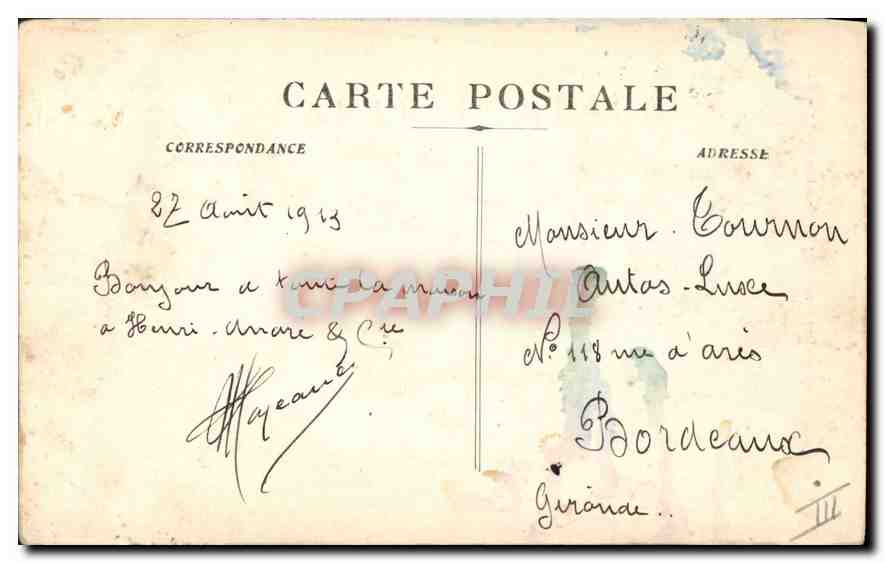 CARTE POSTALE
CORRESPONDANCE
ADRESSE
27 Août 1913
Bonjour a toute la maison
a Henri-André & Cie
Monsieur Tournon
Autos-Luxe
No. 118 rue d'arès
Bordeaux
Gironde..
III
CPAPHIL